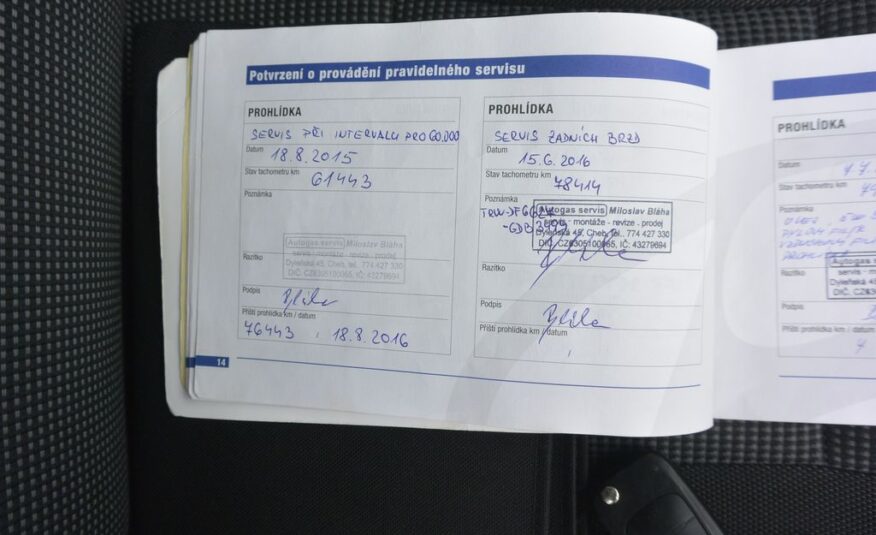 Potvrzení o provádění pravidelného servisu
PROHLÍDKA
SERVIS PŘI INTERVALU PRO 60.000
Datum
18.8.2015
Stav tachometru km
61443
Poznámka
Autogas servis Miloslav Bláha
servis - montáže - revize - prodej
Dyleňská 45, Cheb, tel.: 774 427 330
DIČ. CZ6305100065, IČ: 43279694
Razítko
Podpis
Příští prohlídka km / datum
76443 , 18.8.2016
14
PROHLÍDKA
SERVIS ZADNÍCH BRZD
Datum
15.6.2016
Stav tachometru km
78414
Poznámka
Autogas servis Miloslav Bláha
servis - montáže - revize - prodej
Dyleňská 45, Cheb, tel.: 774 427 330
DIČ. CZ6305100065, IČ: 43279694
Razítko
Podpis
Příští prohlídka km / datum
PROHLÍDKA
Datum
Stav tachometru km
Poznámka
Autogas servis
servis - montáže
Dyleňská 45, Cheb
DIČ. CZ6305100
Razítko
Podpis
Příští prohlídka km / datum